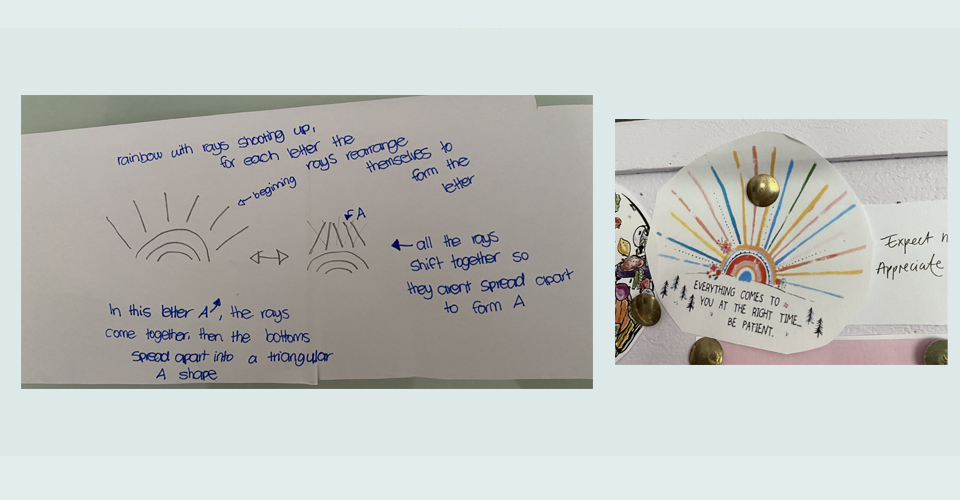 rainbow with rays shooting up,
for each letter the
rays rearrange
themselves to
form the
letter
beginning
A
all the rays
shift together so
they arent spread apart
to form A
In this letter A, the rays
come together, then the bottoms
spread apart into a triangular
A shape
EVERYTHING COMES TO
YOU AT THE RIGHT TIME...
BE PATIENT.
Expect
Appreciate